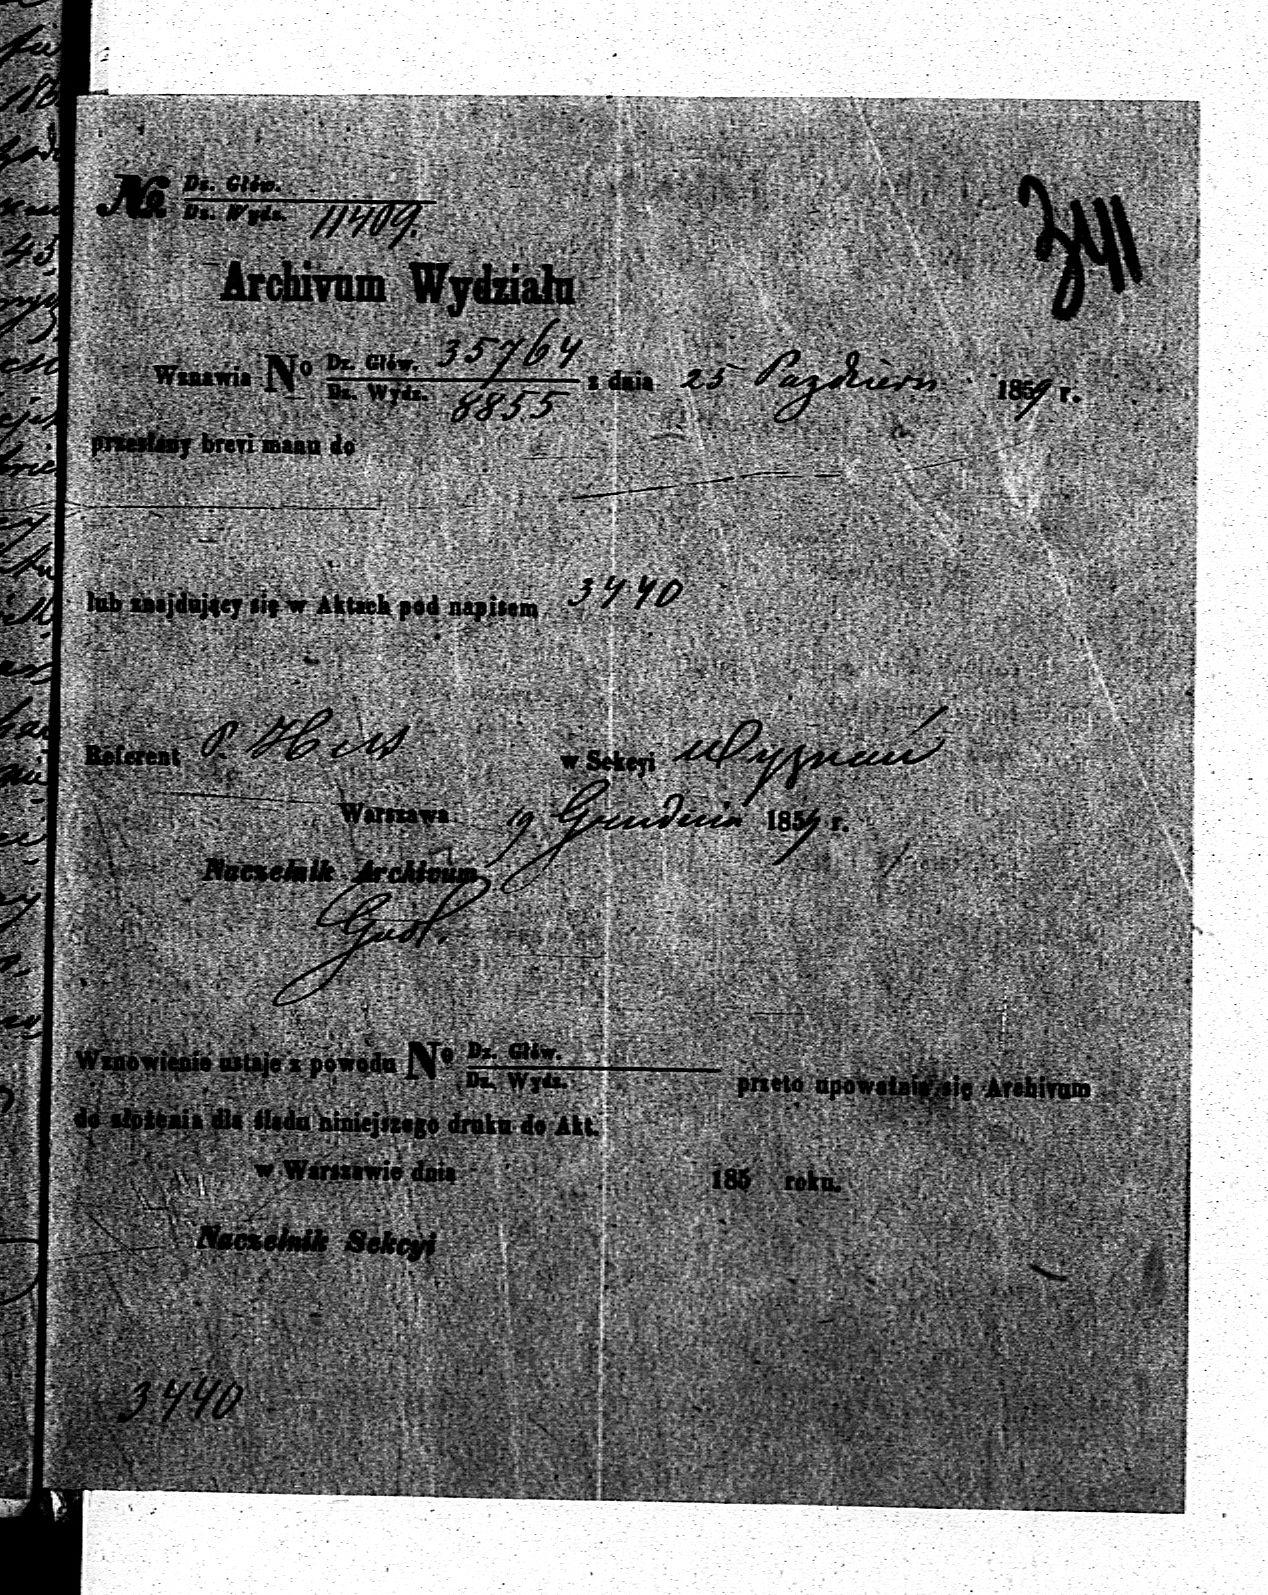 № Dz. Głów.
Dz. Wydz. 11409.
341
Archivum Wydziału
Wznawia No Dz. Głów. 35764
Dz. Wydz. 8855 z dnia 25 Październ. 1859 r.
przesłany brevi manu do
lub znajdujący się w Aktach pod napisem 3440
Referent P. w Sekcyi Wyznań
Warszawa 19 Grudnia 1859 r.
Naczelnik Archivum
Wznowienie ustaje z powodu No Dz. Głów.
Dz. Wydz. przeto upoważnia się Archivum
do złożenia dla śladu niniejszego druku do Akt.
w Warszawie dnia 185 roku.
Naczelnik Sekcyi
3440